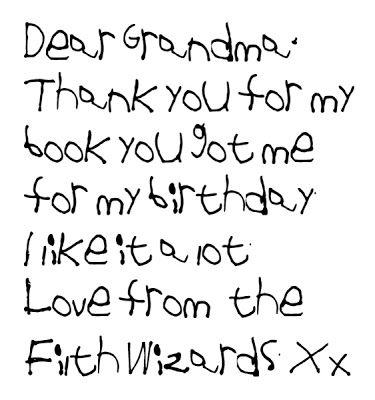 Dear Grandma.
Thank you for my
book you got me
for my birthday
I like it a lot
Love from the
Filth Wizards Xx